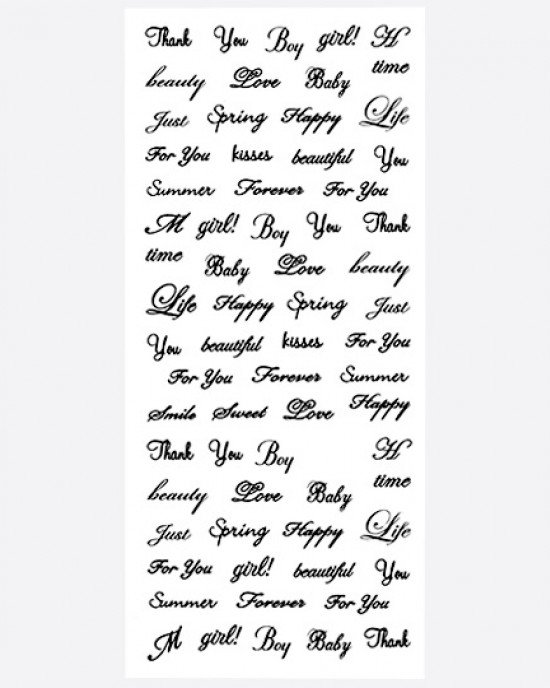 Thank You Boy girl! H
time
beauty Love Baby
Just Spring Happy Life
For You kisses beautiful You
Summer Forever For You
M girl! Boy You Thank
time
Baby Love beauty
Life Happy Spring Just
You beautiful kisses For You
For You Forever Summer
Smile Sweet Love Happy
Thank You Boy H
time
beauty Love Baby
Just Spring Happy Life
For You girl! beautiful You
Summer Forever For You
M girl! Boy Baby Thank